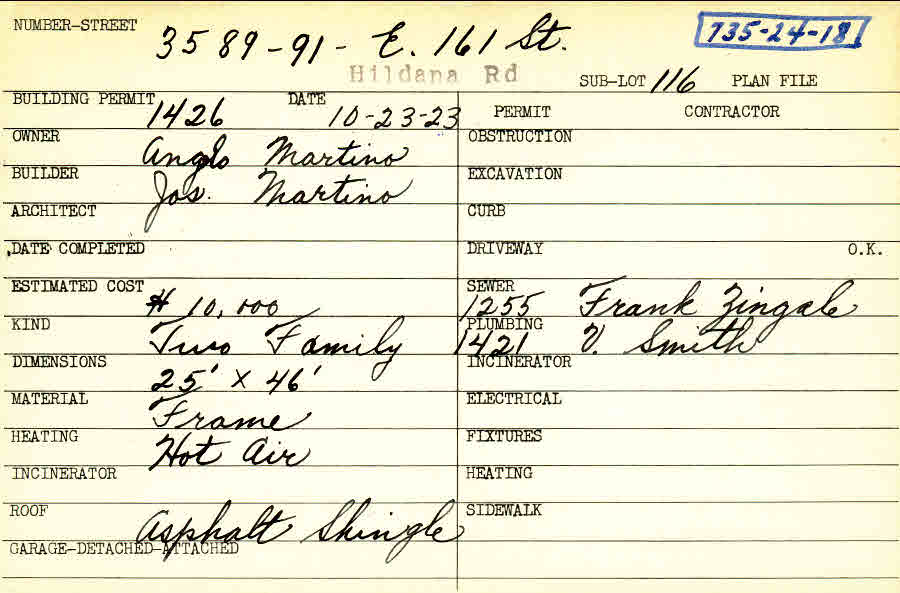 NUMBER-STREET 3589-91- E. 161 St. 735-24-18
Hildana Rd SUB-LOT 116 PLAN FILE
BUILDING PERMIT 1426 DATE 10-23-23 PERMIT CONTRACTOR
OWNER Anglo Martino OBSTRUCTION
BUILDER Jos. Martino EXCAVATION
ARCHITECT CURB
DATE COMPLETED DRIVEWAY O.K.
ESTIMATED COST $ 10,000 SEWER 1255 Frank Zingale
KIND Two Family PLUMBING 1421 V. Smith
DIMENSIONS 25' X 46' INCINERATOR
MATERIAL Frame ELECTRICAL
HEATING Hot Air FIXTURES
INCINERATOR HEATING
ROOF Asphalt Shingle SIDEWALK
GARAGE-DETACHED-ATTACHED